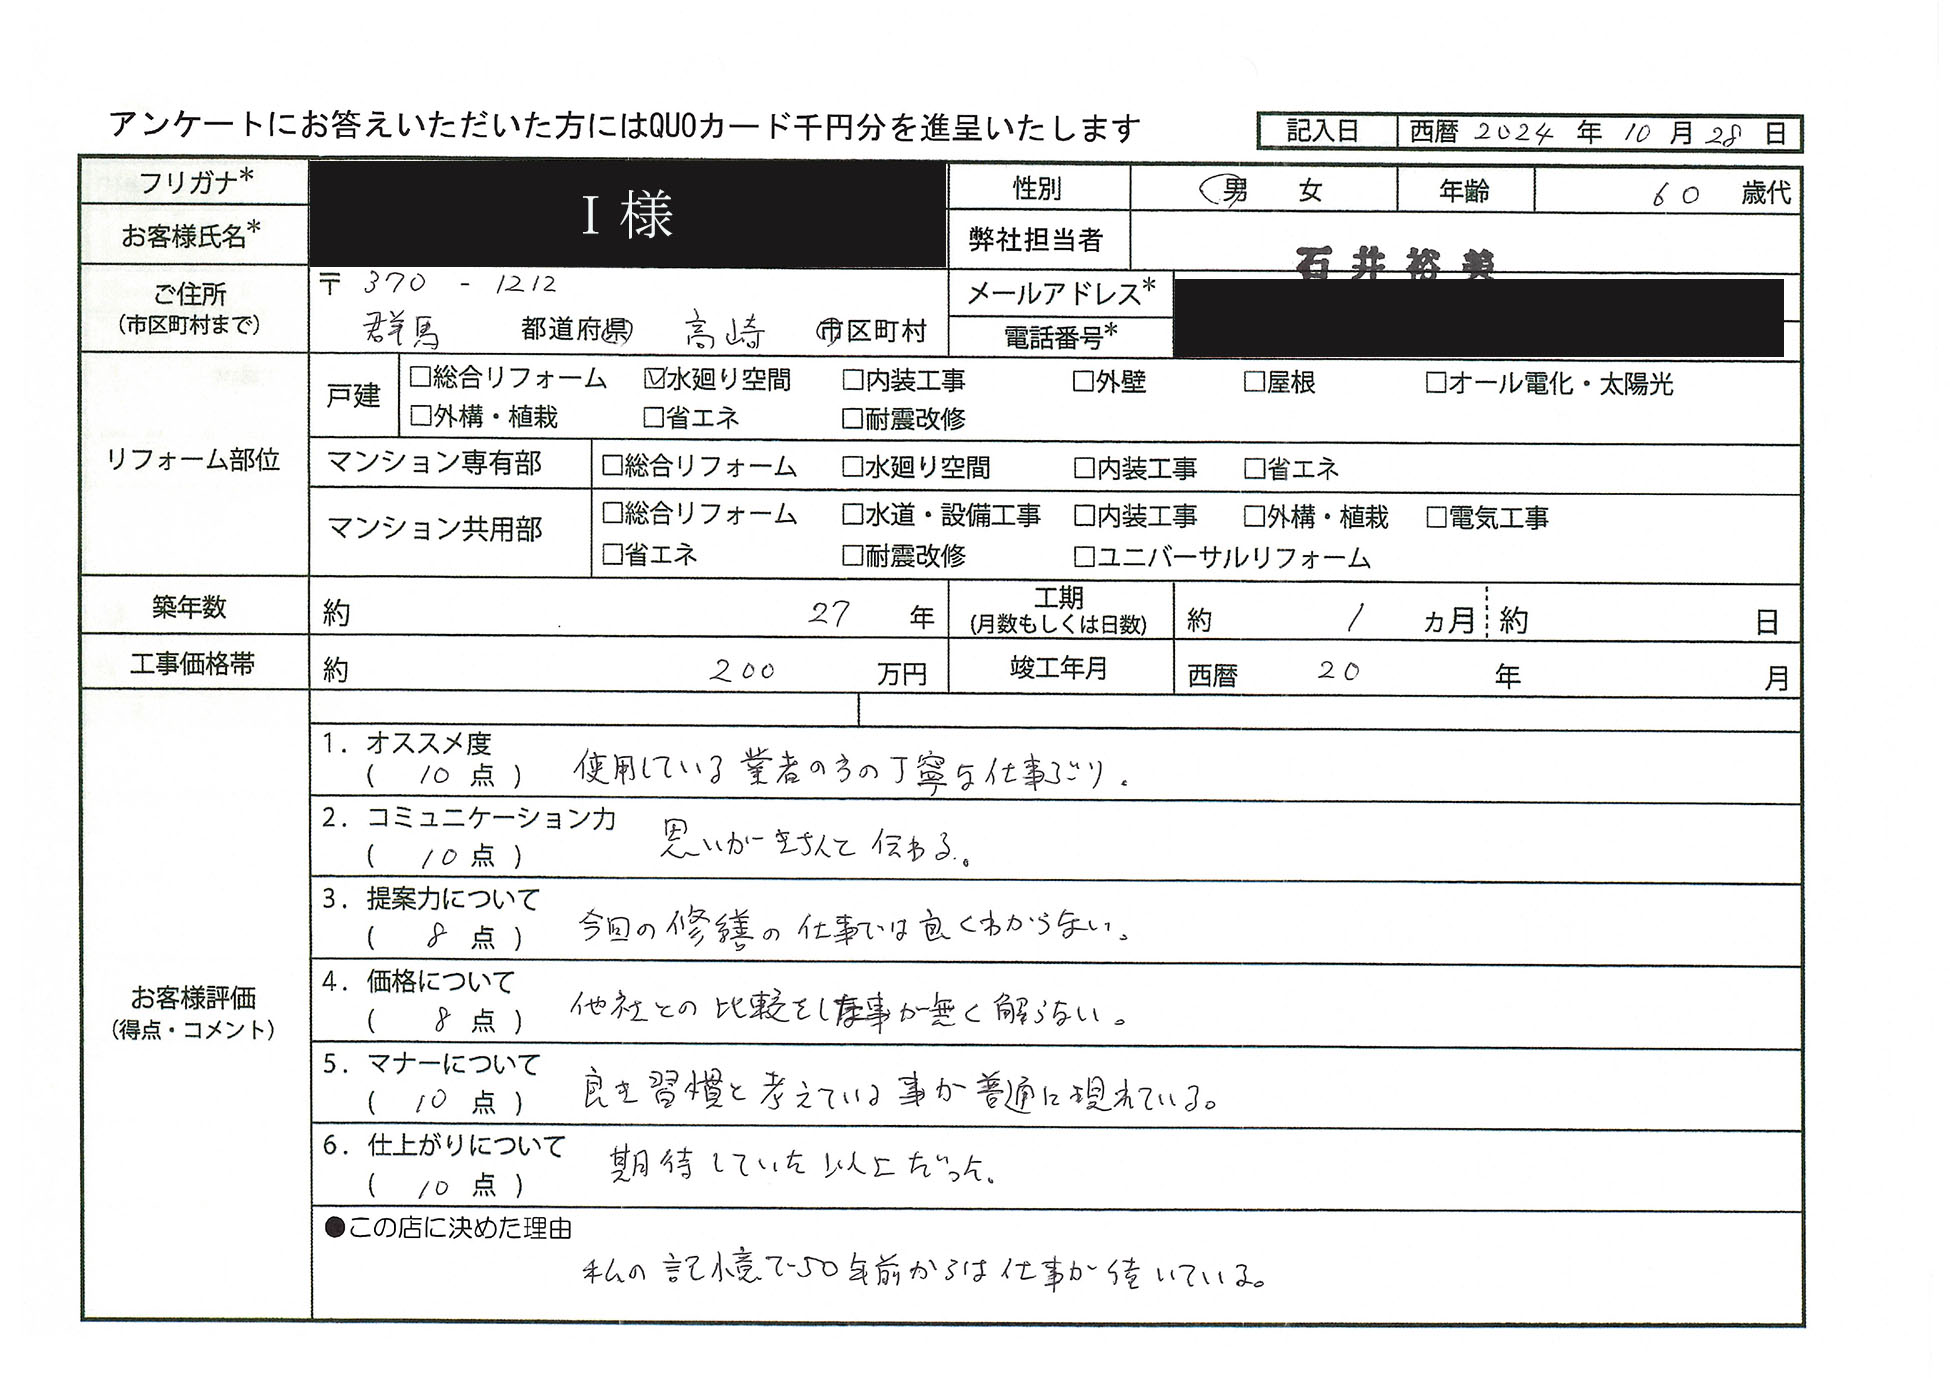 アンケートにお答えいただいた方にはQUOカード千円分を進呈いたします
記入日 西暦 2024 年 10 月 28 日
フリガナ*
お客様氏名*
I 様
性別 男 女 年齢 60 歳代
弊社担当者 石井裕美
ご住所
(市区町村まで)
〒 370 - 1212
群馬 都道府県 高崎 市区町村
メールアドレス*
電話番号*
リフォーム部位
戸建 □総合リフォーム ☑水廻り空間 □内装工事 □外壁 □屋根 □オール電化・太陽光
□外構・植栽 □省エネ □耐震改修
マンション専有部 □総合リフォーム □水廻り空間 □内装工事 □省エネ
マンション共用部 □総合リフォーム □水道・設備工事 □内装工事 □外構・植栽 □電気工事
□省エネ □耐震改修 □ユニバーサルリフォーム
築年数 約 27 年
工期
(月数もしくは日数)
約 1 ヵ月 約 日
工事価格帯 約 200 万円 竣工年月 西暦 20 年 月
お客様評価
(得点・コメント)
1. オススメ度
( 10 点 ) 使用している業者の方の丁寧な仕事ぶり。
2. コミュニケーション力
( 10 点 ) 思いがきちんと伝わる。
3. 提案力について
( 8 点 ) 今回の修繕の仕事では良くわからない。
4. 価格について
( 8 点 ) 他社との比較をした事が無く解らない。
5. マナーについて
( 10 点 ) 良き習慣と考えている事が普通に現れている。
6. 仕上がりについて
( 10 点 ) 期待していた以上だった。
●この店に決めた理由
私の記憶で50年前からは仕事が続いている。